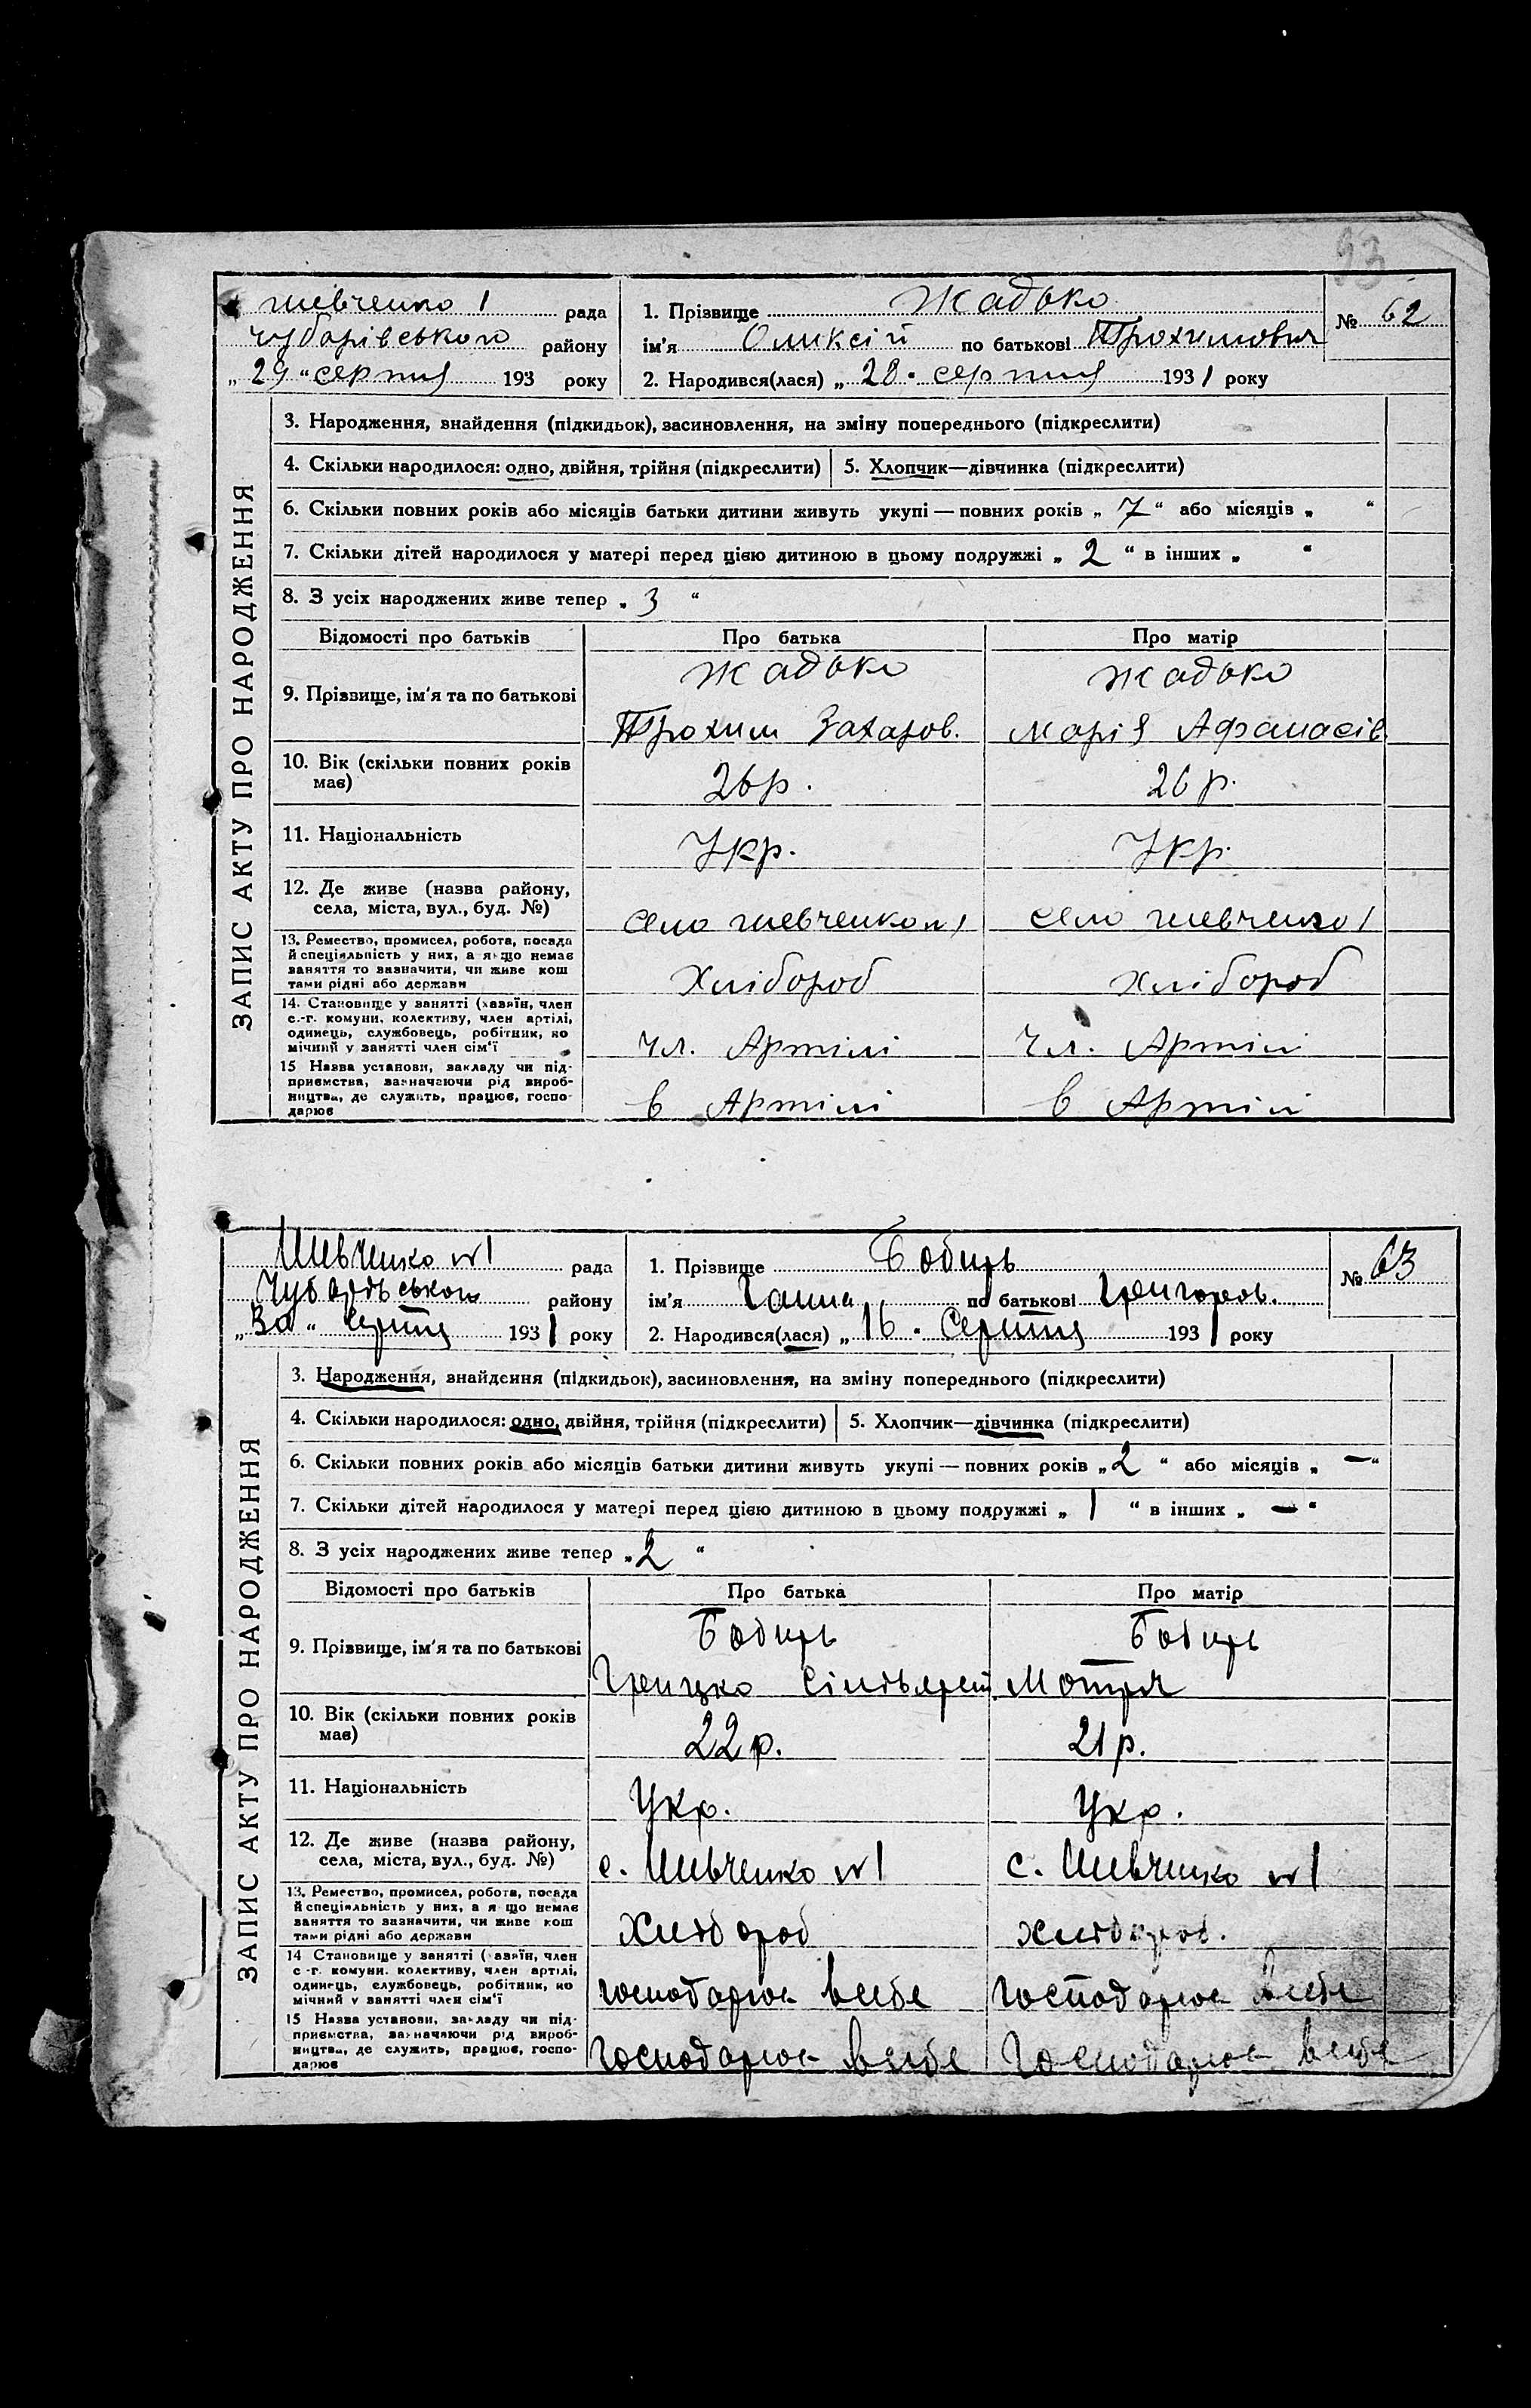 93
Шевченко 1 рада
Чубарівського району
„ 29 “ серпня 193 року
1. Прізвище Жадько
ім'я Оликсій по батькові Трохимович
2. Народився(лася) „ 28 “ серпня 1931 року
№ 62
ЗАПИС АКТУ ПРО НАРОДЖЕННЯ
3. Народження, знайдення (підкидьок), засиновлення, на зміну попереднього (підкреслити)
4. Скільки народилося: одно, двійня, трійня (підкреслити) 5. Хлопчик—дівчинка (підкреслити)
6. Скільки повних років або місяців батьки дитини живуть укупі — повних років „ 7 “ або місяців „ “
7. Скільки дітей народилося у матері перед цією дитиною в цьому подружжі „ 2 “ в інших „ “
8. З усіх народжених живе тепер „ 3 “
Відомості про батьків Про батька Про матір
9. Прізвище, ім'я та по батькові
Жадько Жадько
Трохим Захаров. Марія Афанасів
10. Вік (скільки повних років
має)
26 р. 26 р.
11. Національність
Укр. Укр.
12. Де живе (назва району,
села, міста, вул., буд. №)
село Шевченко № 1 село Шевченко 1
13. Ремество, промисел, робота, посада
й спеціяльність у них, а якщо немає
заняття то зазначити, чи живе кош
тами рідні або держави
Хлібороб Хлібороб
14. Становище у занятті (хазяїн, член
с.-г. комуни, колективу, член артілі,
одинець, службовець, робітник, по
мічний у занятті член сім'ї
чл. Артілі чл. Артілі
15 Назва установи, закладу чи під-
приємства, зазначаючи рід вироб-
ництва, де служить, працює, госпо-
дарює
в Артілі в Артілі
Шевченко № 1 рада
Чубарівського району
„ 30 “ серпня 1931 року
1. Прізвище Бобирь
ім'я Ганна по батькові Григоров.
2. Народився(лася) „ 16 “ Серпня 1931 року
№ 63
ЗАПИС АКТУ ПРО НАРОДЖЕННЯ
3. Народження, знайдення (підкидьок), засиновлення, на зміну попереднього (підкреслити)
4. Скільки народилося: одно, двійня, трійня (підкреслити) 5. Хлопчик—дівчинка (підкреслити)
6. Скільки повних років або місяців батьки дитини живуть укупі — повних років „ 2 “ або місяців „ — “
7. Скільки дітей народилося у матері перед цією дитиною в цьому подружжі „ 1 “ в інших „ — “
8. З усіх народжених живе тепер „ 2 “
Відомості про батьків Про батька Про матір
9. Прізвище, ім'я та по батькові
Бобирь Бобирь
Грицько Мотря
10. Вік (скільки повних років
має)
22 р. 21 р.
11. Національність
Укр. Укр.
12. Де живе (назва району,
села, міста, вул., буд. №)
с. Шевченко № 1 с. Шевченко № 1
13. Ремество, промисел, робота, посада
й спеціяльність у них, а якщо немає
заняття то зазначити, чи живе кош
тами рідні або держави
Хлібороб хлібороб.
14 Становище у занятті (хазяїн, член
с.-г. комуни, колективу, член артілі,
одинець, службовець, робітник, по
мічний у занятті член сім'ї
господарює в себе господарює в себе
15 Назва установи, закладу чи під-
приємства, зазначаючи рід вироб-
ництва, де служить, працює, госпо-
дарює
господарює в себе господарює в себе